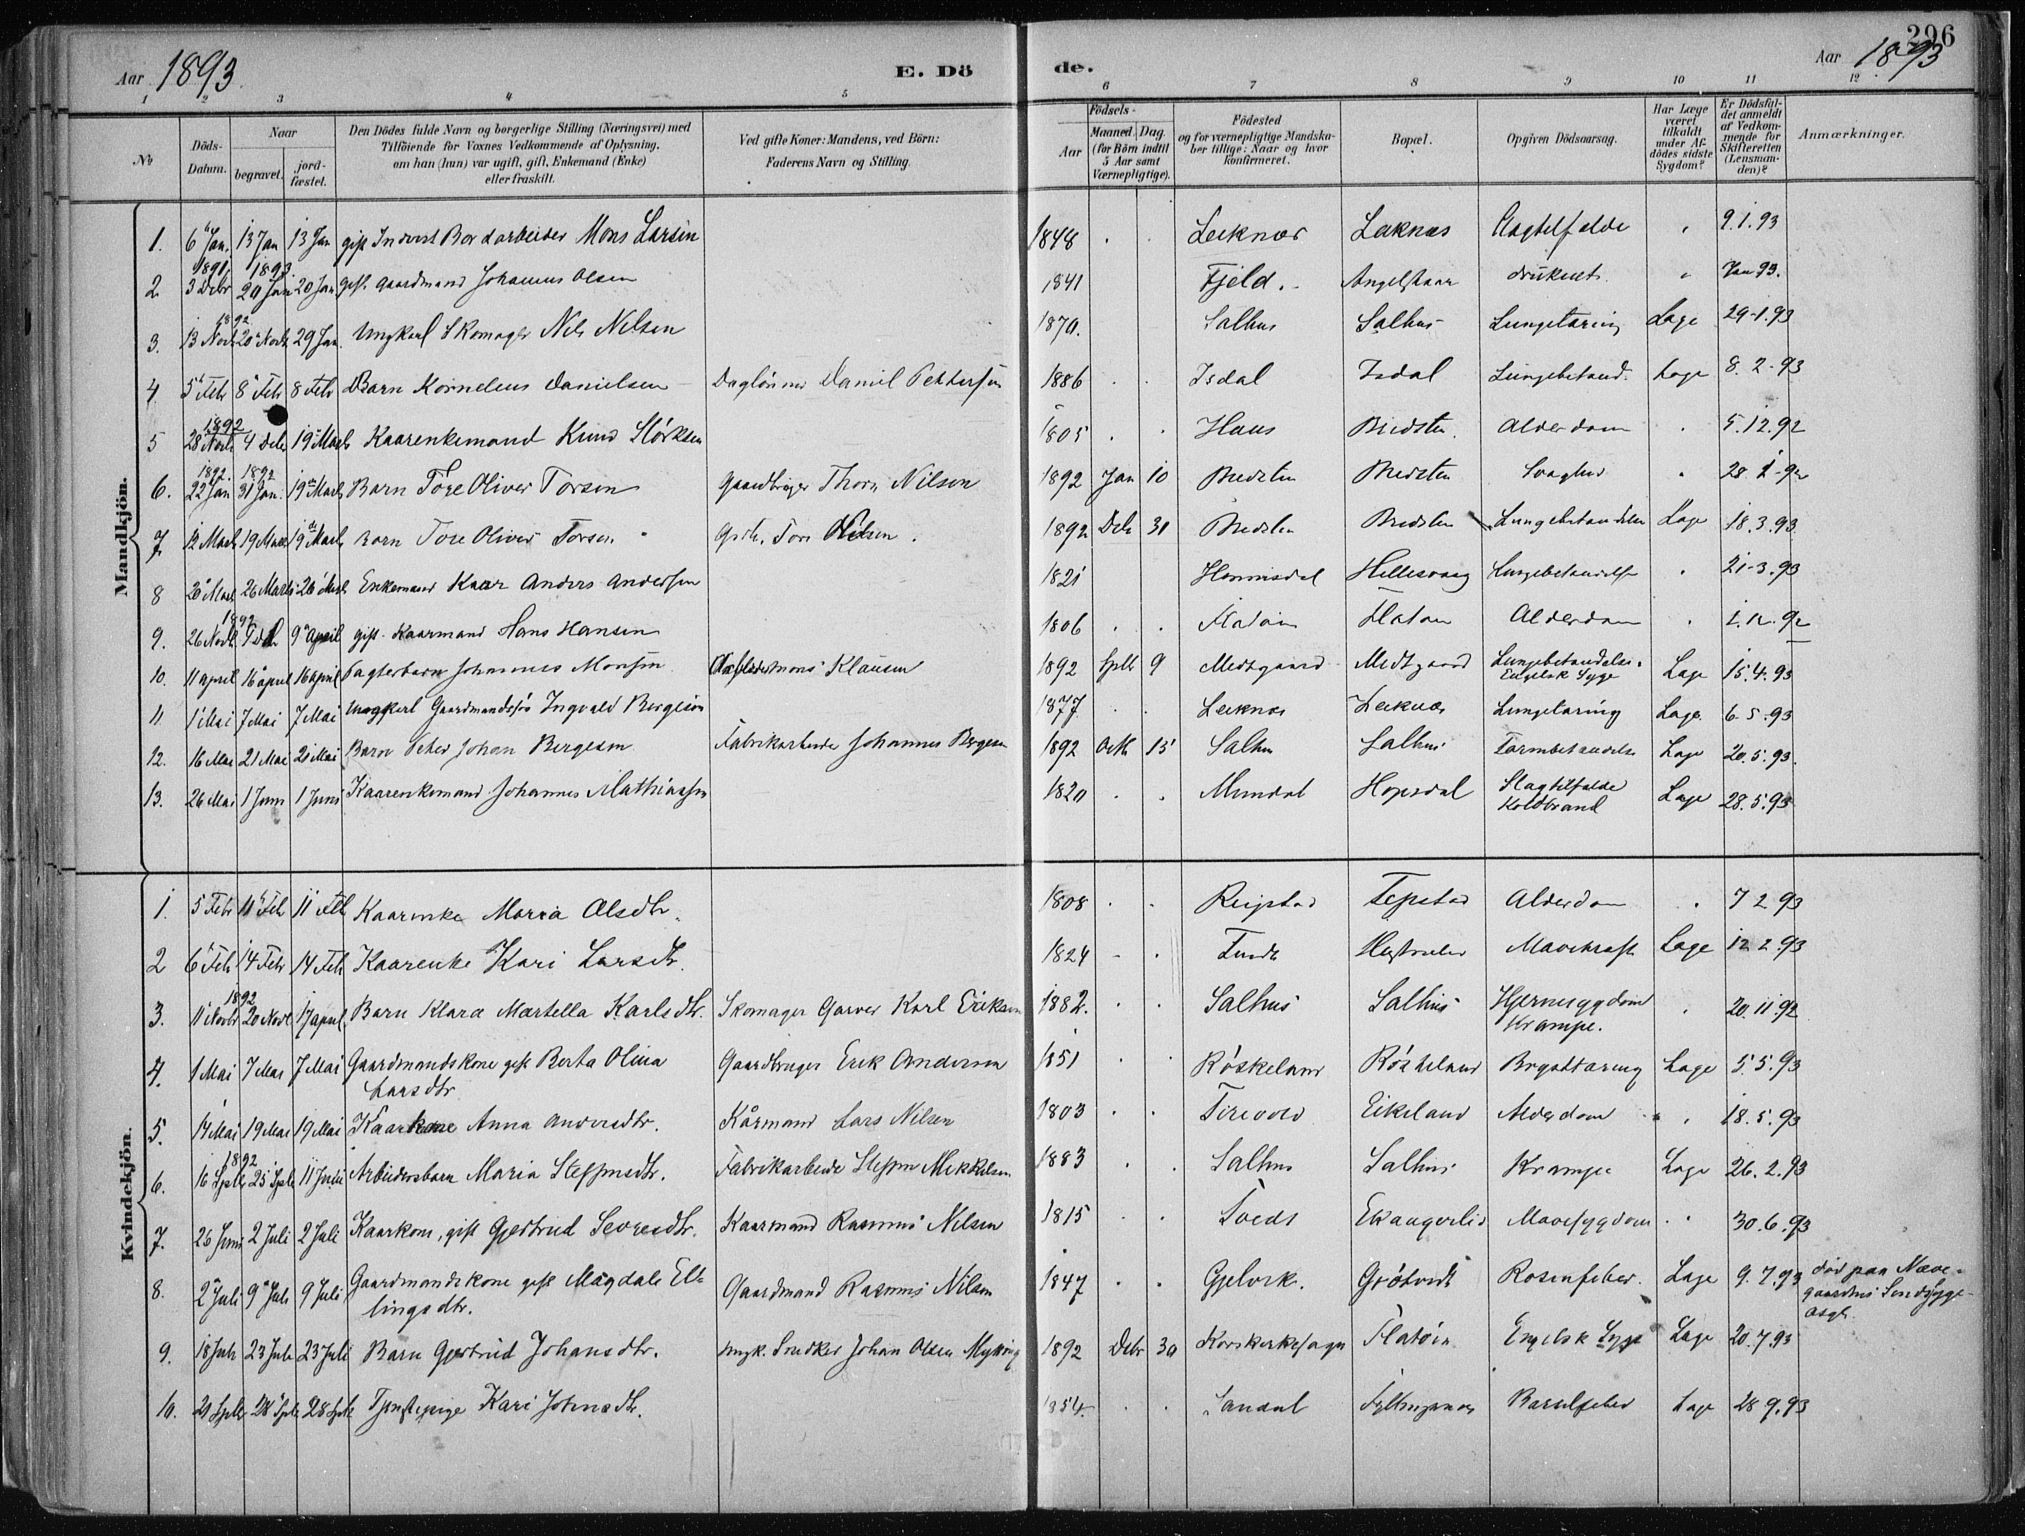 296
Aar 1893. E. Dö
de. Aar 1893
1 2 3 4 5 6 7 8 9 10 11 12
No
Döds-Datum.
Naar
begravet.
jord-fæstet.
Den Dödes fulde Navn og borgerlige Stilling (Næringsvei) med
Tilföiende for Voxnes Vedkommende af Oplysning,
om han (hun) var ugift, gift, Enkemand (Enke)
eller fraskilt.
Ved gifte Koner: Mandens, ved Börn:
Faderens Navn og Stilling.
Födsels-
Aar
Maaned Dag.
(for Börn indtil
5 Aar samt
Værnepligtige).
Födested
og for værnepligtige Mandska-
ber tillige: Naar og hvor
konfirmeret.
Bopæl.
Opgiven Dödsaarsag.
Har Læge
været
tilkaldt
under Af-
dödes sidste
Sygdom?
Er Dödsfal-
det anmeldt
af Vedkom-
mende for
Skifteretten
(Lensman-
den)?
Anmærkninger.
Mandkjön.
1. 6 Jan. 13 Jan 13 Jan gift Mons Larsen 1848 . . Leknes Leknes 9.1.93
1893.
2. 3 Debr 20 Jan 20 Jan gift gaardmand Johannes Olsen 1841 Fjeld. druknet Jan 93.
1892
3. 13 Novb 20 Novb 29 Jan Ungkarl Skomager Nils Nilsen 1870. Salhus Salhus Lungetæring Læge 29-1.93
4 5 Feb 8 Feb 8 Feb Barn Kornelius Danielsen Daglönner Daniel Pettersen 1886 . . Isdal Isdal Lungebetænd. Læge 8.2.93
1892
5 28 Novb 4 Deb 19 Marts Kaarenkemand Knud Störksen 1805 . . Haus Bredsten. Alderdom 5.12.92
1892. 1892
6. 22 Jan 31 Jan. 19 Marts Barn Tore Oliver Torsen Gaardbruger Thore Nilsen 1892 Jan 10 Bredsten Bredsten 28.1.92
7. 12 Marts 19 Marts 19 Marts Barn Tore Oliver Torsen Gbr. Tore Nilsen. 1892 Deb 31 Bredsten Bredsten Lungebetændelse Læge 18.3.93
8 20 Marts 26 Marts 26 Marts Enkemand Kaar Anders Andersen 1821 Hillesvaag Lungebetændelse 21-3.93
1892
9. 26 Novb 9 April gift. Kaarmand Hans Hansen 1806 . . Flatøen Flatøen Alderdom 1.12.92
10. 11 april 16 april 16 april Pagterbarn Johannes Monsen Mons Klausen 1892 Septb 9 Midtgaard Midtgaard Lungebetændelse. Læge 15.4.93
Engelsk Syge
11. 1 Mai 7 Mai 7 Mai Ungkarl Gaardmandssøn Ingvald Birgeson 1877 . . Leknes Leknes Lungetæring Læge. 6.5.93
12. 16 Mai 21 Mai 21 Mai Barn Peter Johan Bergesen Fabrikarbeider Johannes Bergesen 1892 Octb 15 Salhus Salhus Tarmbetændelse Læge 20.5.93.
13. 26 Mai 1 Juni 1 Juni Kaarenkemand Johannes Mathiassen 1820 . . Mundal Hopsdal Slagtilfælde Læge 28.5.93
Koldbrand
Kvindekjön.
1. 5 Febr 11 Feb 11 Feb Kaarenke Maria Olsdtr. 1808 . . Reigstad Alderdom . 7 2.93
2 6 Feb 14 Feb 14 Feb Kaarenke Kari Larsdtr. 1824 - . Mavekræft Læge 12.2.93
1892
3. 11 Novbr 20 Novb 17 april Barn Klara Martella Karlsdtr. Skomager Garver Karl Eriksen 1882. . . Salhus Salhus Hjernesygdom 20.11.92
Krampe.
4. 1 Mai 7 Mai 7 Mai Gaardmandskone gift Berta Olina Gaardbruger Erik Andersen 1851 . . Røskeland Røskeland Brysttæring Læge 5.5.93
Larsdtr.
5. 14 Mai 19 Mai 19 Mai Kaarkone Anna Andersdtr. Kårmand Lars Nilsen 1803 . . Eikeland Alderdom 18.5.93
1892
6. 16 Septb 25 Septb 11 Juni Arbeidersbarn Maria Steffensdtr. Fabrikarbeider Steffen Mikkelsen 1883 . . Salhus Salhus Krampe Læge 26.2.93
7. 26 Juni 2 Juli 2 Juli Kaarkone, gift Gjertrud Seversdtr. Kaarmand Rasmus Nilsen 1815 . . Tvedt Mavesygdom . 30.6.93
8. 2 Juli 9 Juli 9 Juli Gaardmandskone gift Magdale El- Gaardmand Rasmus Nilsen 1847 . . Gjelvik. Grøtvedt Rosenfeber. Læge 9.7.93 død paa Neve-
lingsdtr. gaardens Sindsyge-
asyl.
9. 18 Juli 23 Juli 23 Juli Barn Gjertrud Johansdtr. Ungk. Snedker Johan Olsen Myking 1892 Debr 30 Korskirkesogn Flatøen Engelsk Syge Læge 20.7.93
10. 21 Septb 28 Septb 28 Septb Tjenestepige Kari Johnsdtr. 1854. . . Sandal Barselfeber Læge 28 9.93